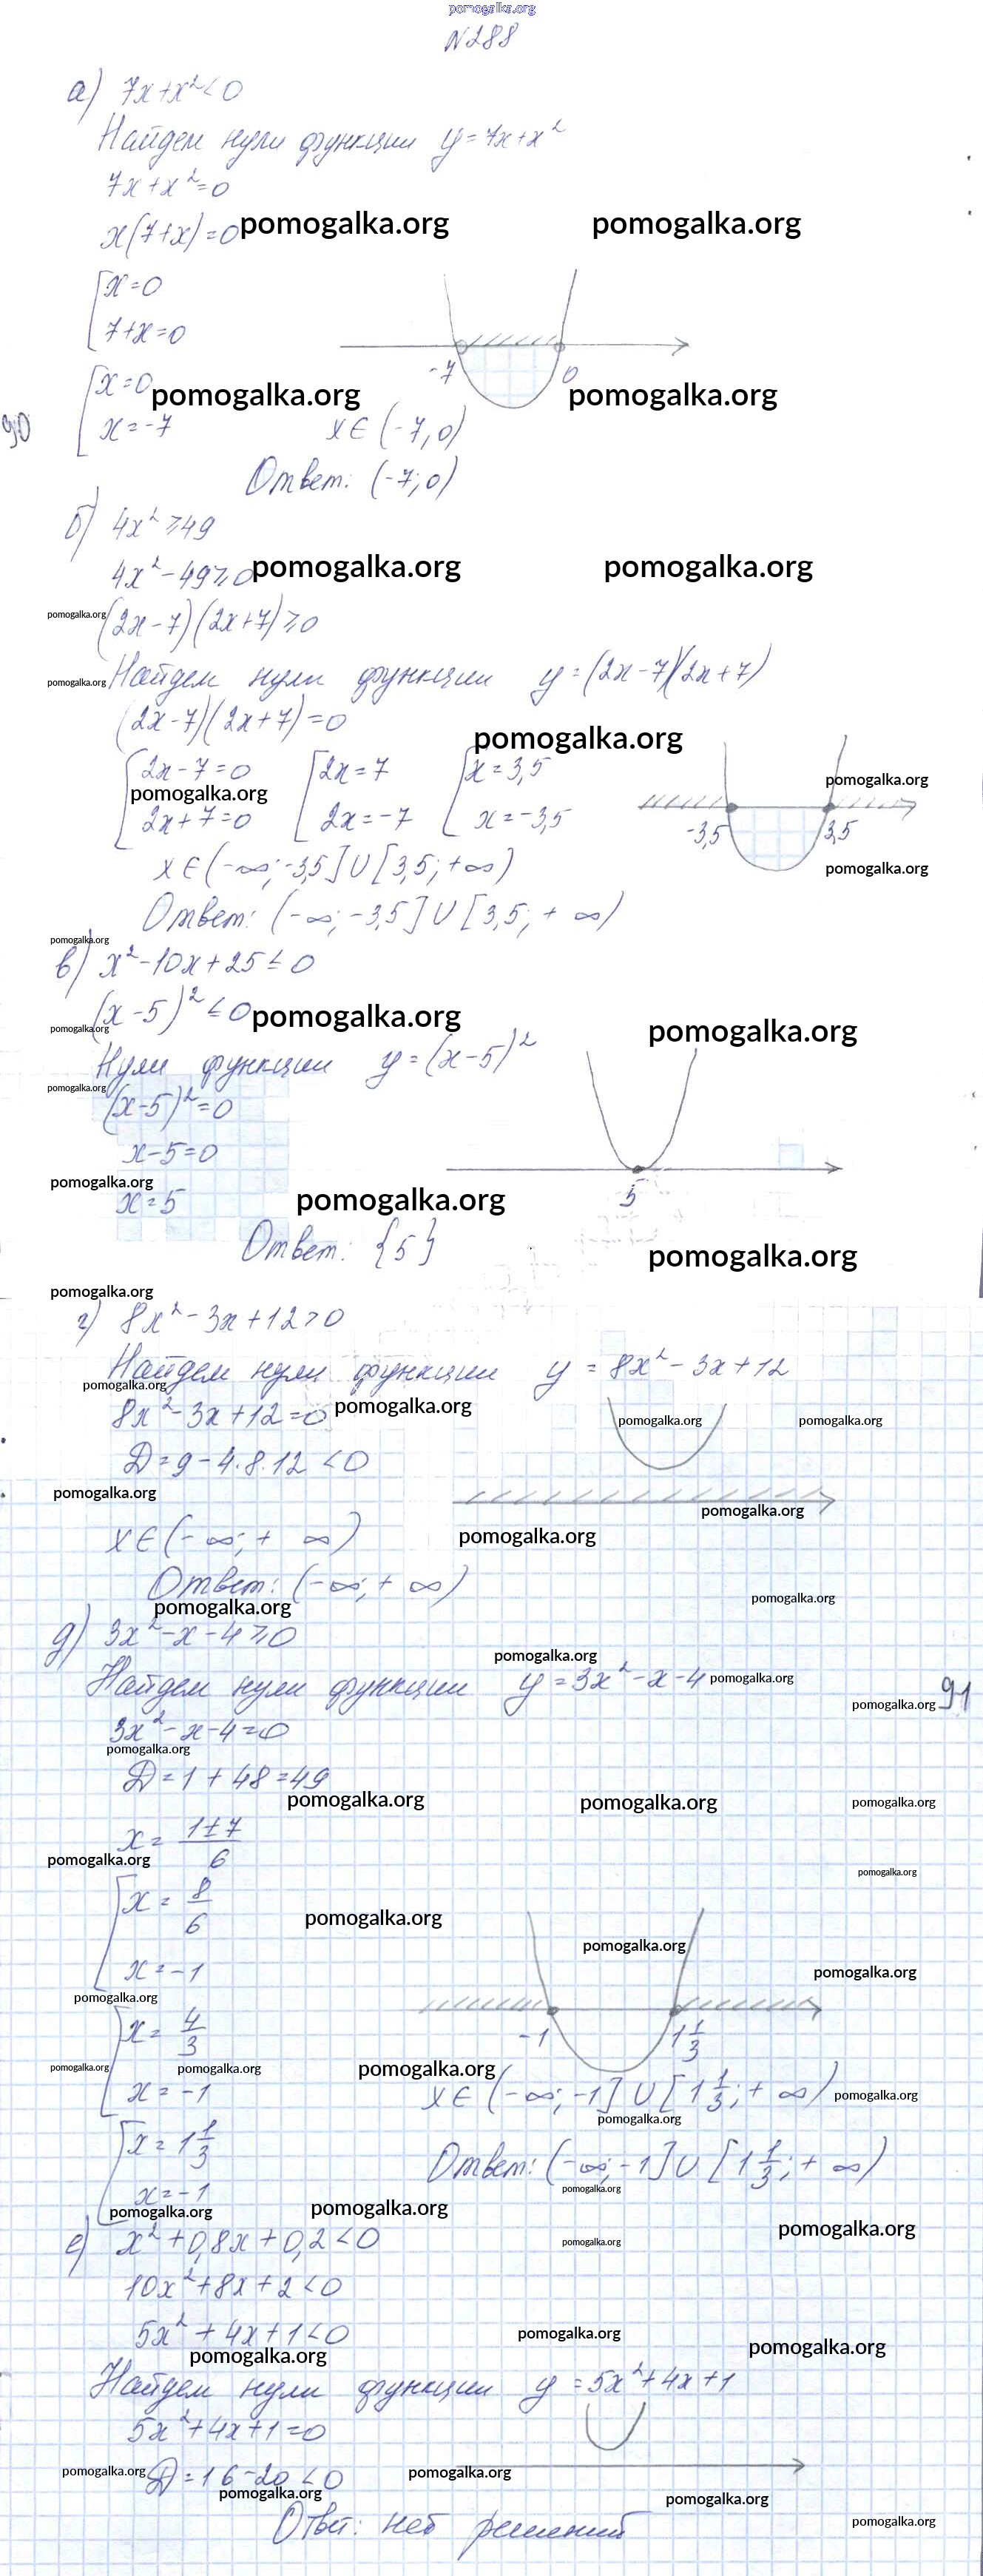 pomogalka.org
N288
а) 7x+x²<0
Найдем нули функции y=7x+x²
7x+x²=0
x(7+x)=0 pomogalka.org pomogalka.org
x=0
7+x=0
-7 0
x=0 pomogalka.org pomogalka.org
90 x=-7 x∈(-7,0)
Ответ: (-7;0)
б) 4x²≥49
4x²-49≥0 pomogalka.org pomogalka.org
pomogalka.org (2x-7)(2x+7)≥0
pomogalka.org Найдем нули функции y=(2x-7)(2x+7)
(2x-7)(2x+7)=0
pomogalka.org
2x-7=0 2x=7 x=3,5 pomogalka.org
pomogalka.org
2x+7=0 2x=-7 x=-3,5 -3,5 3,5
x∈(-∞;-3,5]∪[3,5;+∞) pomogalka.org
Ответ: (-∞;-3,5]∪[3,5;+∞)
pomogalka.org
в) x²-10x+25≤0
(x-5)²≤0 pomogalka.org pomogalka.org
pomogalka.org
Нули функции y=(x-5)²
pomogalka.org
(x-5)²=0
x-5=0
pomogalka.org
x=5 pomogalka.org 5
Ответ: {5} pomogalka.org
pomogalka.org
г) 8x²-3x+12>0
Найдем нули функции y=8x²-3x+12
pomogalka.org
8x²-3x+12=0 pomogalka.org pomogalka.org pomogalka.org
D=9-4·8·12<0
pomogalka.org pomogalka.org
x∈(-∞;+∞) pomogalka.org
Ответ: (-∞;+∞) pomogalka.org
pomogalka.org
д) 3x²-x-4≥0
pomogalka.org
Найдем нули функции y=3x²-x-4 pomogalka.org
pomogalka.org 91
3x²-x-4=0
pomogalka.org
D=1+48=49
pomogalka.org pomogalka.org pomogalka.org
x=(1±7)/6
pomogalka.org pomogalka.org
x=8/6 pomogalka.org
pomogalka.org
x=-1 pomogalka.org
pomogalka.org
x=4/3 -1 1 1/3
pomogalka.org pomogalka.org pomogalka.org
x=-1 x∈(-∞;-1]∪[1 1/3;+∞) pomogalka.org
pomogalka.org
x=1 1/3 Ответ: (-∞;-1]∪[1 1/3;+∞)
pomogalka.org
x=-1
pomogalka.org pomogalka.org pomogalka.org
е) x²+0,8x+0,2<0 pomogalka.org
10x²+8x+2<0
5x²+4x+1<0 pomogalka.org pomogalka.org
pomogalka.org
Найдем нули функции y=5x²+4x+1
5x²+4x+1=0
pomogalka.org D=16-20<0 pomogalka.org
pomogalka.org pomogalka.org
Ответ: нет решений pomogalka.org